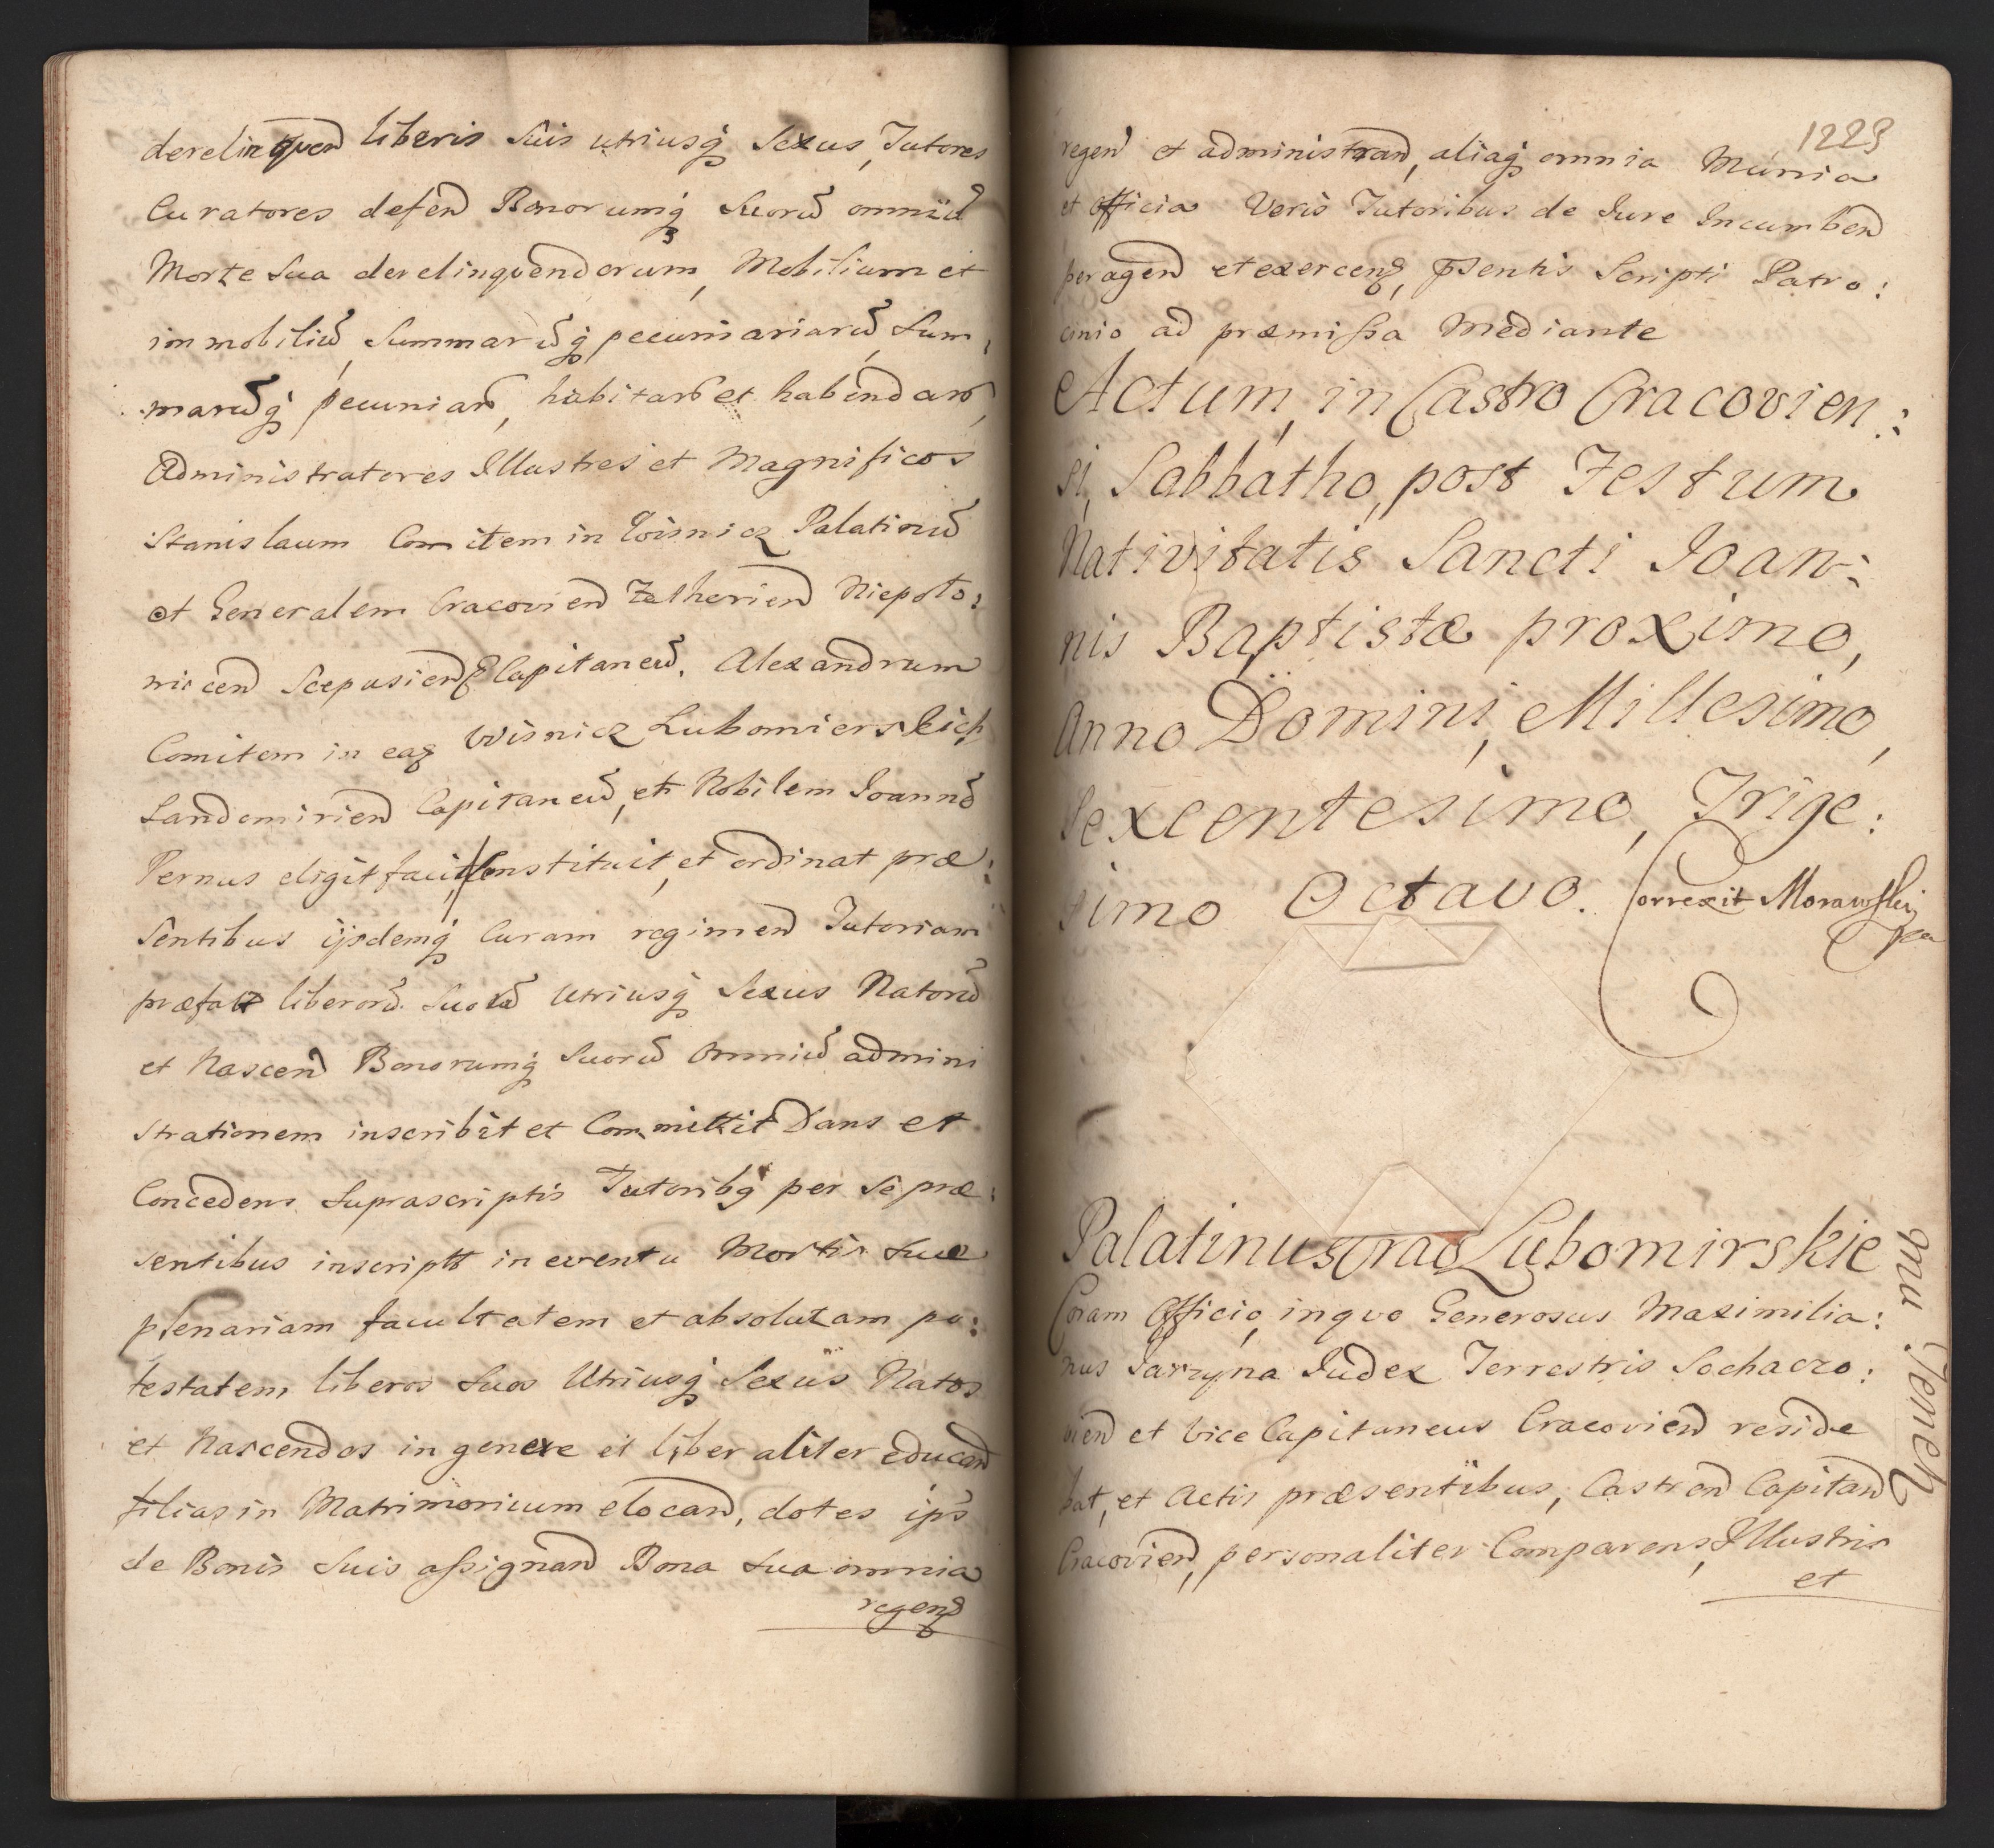 derelinquend liberis suis utriusq Sexus, Tutores
Curatores defend Bonorumq Suorū omniū
Morte sua derelinquendorum, Mobilium et
immobiliū, Summarūq pecuniariarū, Sum:
marūq pecuniarū, habitarū et habendarū,
Administratores Illustres et Magnificos
Stanislaum Comitem in Wisnicz Palatinū
et Generalem Cracoviend Zatheriend Niepoło:
nicend Scepusiendq Capitaneū. Alexandrum
Comitem in eaq Wisnicz Lubomierskich
Sandomiriend Capitaneū, et Nobilem Joannē
Pernus eligit facit Constituit, et ordinat præ:
sentibus ijsdemq Curam regimend Tutoriam
præfat liberorū suorū Utriusq Sexus Natorū
et Nascend Bonorumq Suorū Omniū admini
strationem inscribit et Committit Dans et
Concedens Suprascriptis Tutoribq per se præ:
sentibus inscript in eventu Mortis suæ
plenariam facultatem et absolutam po:
testatem liberos suos Utriusq Sexus Natos
et Nascendos in genere et liberaliter educand
filias in Matrimonium elocand, dotes ips
de Bonis suis assignand Bona sua omnia
regend
1223
regend et administrand, aliaq omnia Munia
et officia Veris Tutoribus de Iure Incumbend
peragend et exercend, pſentis Scripti Patro:
cinio ad præmissa Mediante
Actum, in Castro Cracovien:
si, Sabbatho, post Festum
Nativitatis Sancti Ioan:
nis Baptistæ proximo,
Anno Domini, Millesimo,
Sexcentesimo, Trige:
simo Octavo. Correxit Morawski
Palatinus Crac Lubomirskie
mu. Tenent
Coram Officio, in quo Generosus Maximilia:
nus Jarzyna Judex Terrestris Sochaczo:
viend et Vice Capitaneus Cracoviend reside
bat, et Actis præsentibus, Castrend Capitand
Cracoviend, personaliter Comparens, Illustris
et